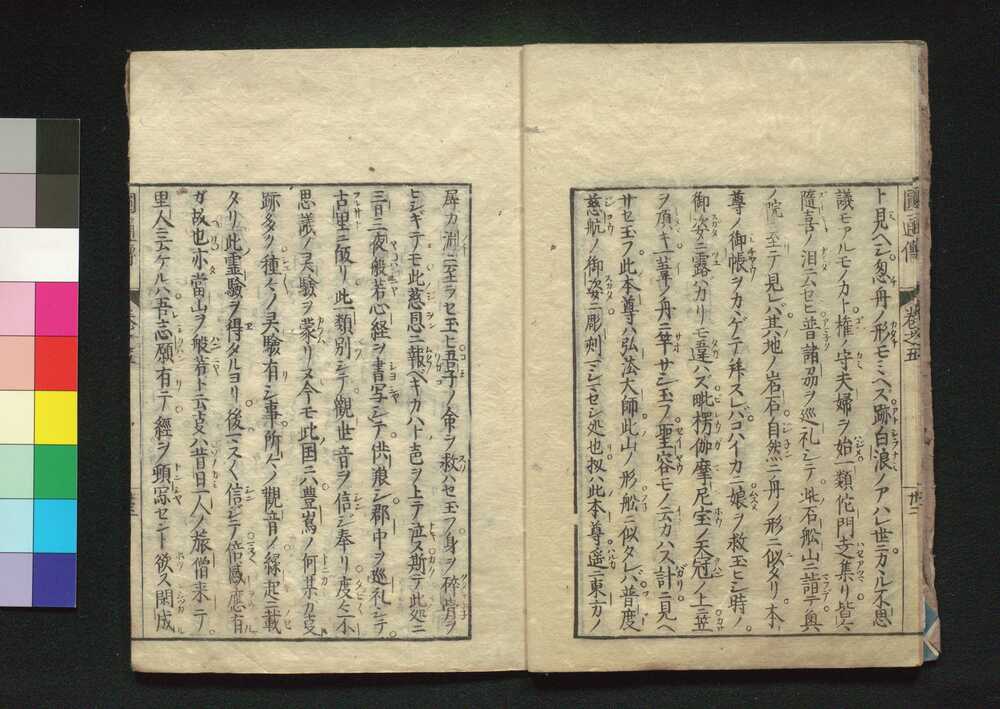 圓通傳 巻之五 廿二
ト見ヘシ忽舟ノ形モミヘズ跡白浪ノアハレ世ニカヽル不思
議モアルモノカト権ノ守夫婦ヲ始一類佗門マテ集リ皆々
隨喜ノ泪ニムセビ普諸刕ヲ巡礼シテ此石舩山ニ詣テ奥
ノ院ニ至テ見レバ其地ノ岩石自然ニ舟ノ形ニ似タリ本
尊ノ御帳ヲカヽゲテ拜スレバコハイカニ娘ヲ救玉ヒシ時ノ
御姿ニ露ハカリモ違ハズ毗楞伽摩尼宝ノ天冠ノ上ニ笠
ヲ頂キ一葦ノ舟ニ竿サシ玉フ聖容モノ云カハス計ニ見ヘ
サセ玉フ此本尊ハ弘法大師此山ノ形舩ニ似タレハ普度
慈航ノ御姿ニ彫刻マシマセシ処也扨ハ此本尊遥ニ東方ノ
犀カ淵ニ至ラセ玉ヒ吾子ノ命ヲ救ハセ玉フノ身ヲ碎骨ヲ
ヒシギテモ此慈恩ニ報ベキカハト声ヲ上テ泣ヌ斯テ此処ニ
三日三夜般若心経ヲ書写シテ供養シ郡中ヲ巡礼シテ
古里ニ皈リ此一類別シテ觀世音ヲ信ジ奉リ度々不
思議ノ灵驗ヲ蒙リヌ今モ此国ニ豊嶌ノ何某カ
跡多ク種々ノ灵驗有シ事所々ノ觀音ノ縁起ニ載
タリ此霊驗ヲ得タルヨリ後ハ一入ノ信ジテ倍感應有
ガ故也亦當山ヲ般若ト云ハ昔日一人ノ旅僧来テ
里人ニ云ケルハ吾志願有テ經ヲ頓冩セシト欲ス閑成